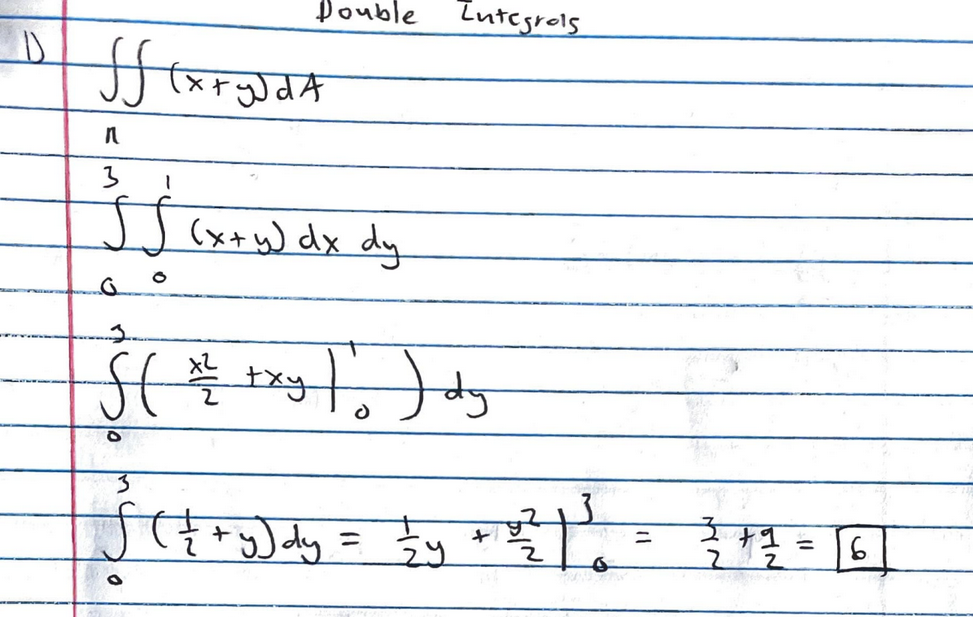 Double Integrals
1) ∬ (x+y) dA
R
3 1
∫ ∫ (x+y) dx dy
0 0
3
∫ ( x²/2 + xy |¹₀ ) dy
0
3
∫ (1/2 + y) dy = 1/2 y + y²/2 |³₀ = 3/2 + 9/2 = 6
0